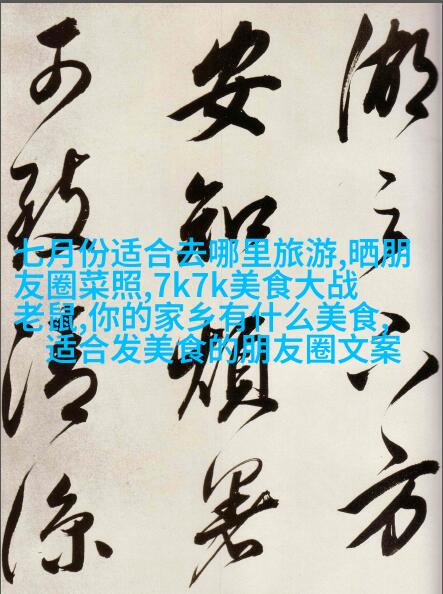 湖之方
安知煩暑
可致清涼
七月份适合去哪里旅游,晒朋
友圈菜照,7k7k美食大战
老鼠,你的家乡有什么美食,
适合发美食的朋友圈文案